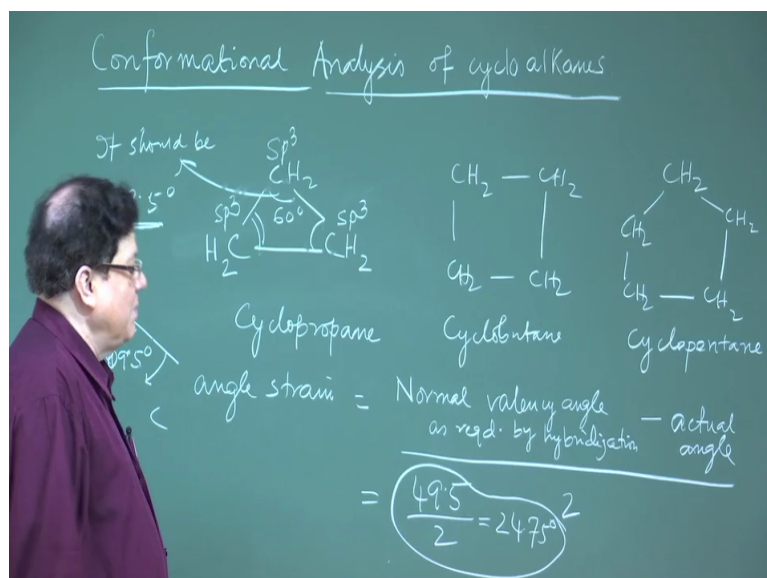 Conformational Analysis of cycloalkanes
It should be
.5°
sp³
CH₂
sp³ 60° sp³
H₂C CH₂
Cyclopropane
CH₂ — CH₂
CH₂ — CH₂
Cyclobutane
CH₂
CH₂ CH₂
CH₂ — CH₂
Cyclopentane
09.5°
C
angle strain = Normal valency angle as reqd. by hybridization — actual angle
2
= 49.5 / 2 = 24.75°